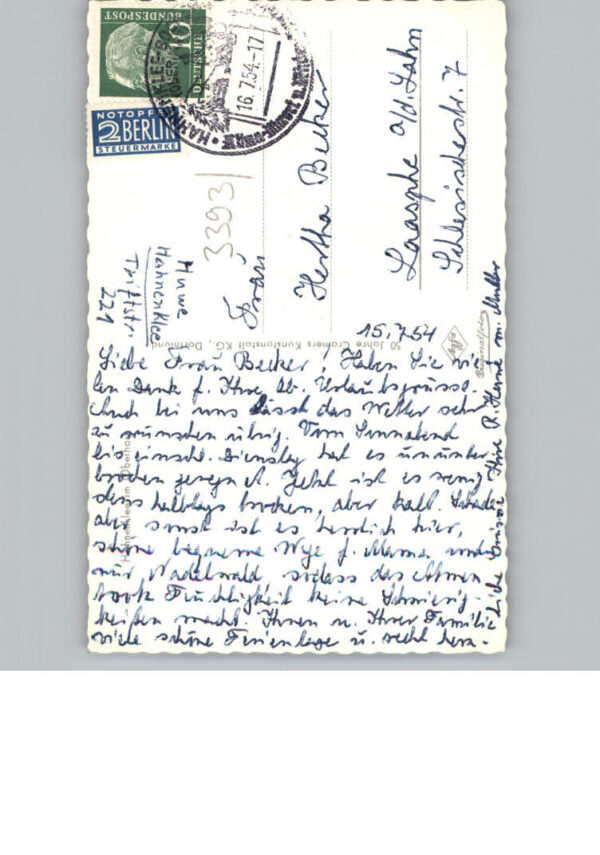 DEUTSCHE
BUNDESPOST
10
NOTOPFER
2 BERLIN
STEUERMARKE
HAHNENKLEE-BO
16.7.54-17
3393
Huwe
Hahnenklee
Triftstr.
221
Frau
Hertha Becker
Laasphe a/d. Lahn
Schlesischestr. 7
50 Jahre Cramers Kunstanstalt KG, Dortmund
Agfa
Hahnenklee im Oberharz
15.7.54
Liebe Frau Becker! Haben Sie vie-
len Dank f. Ihre lb. Urlaubsgrüsse.
Auch bei uns lässt das Wetter sehr
zu wünschen übrig. Vom Sonnabend
bis einschl. Dienstag hat es ununter-
brochen geregnet. Jetzt ist es wenig
stens halbtags trocken, aber kalt. Schade
aber sonst ist es herrlich hier,
schöne bequeme Wege f. Mama und
nur Nadelwald, sodass das Atmen
trotz Feuchtigkeit keine Schwierig-
keiten macht. Ihnen u. Ihrer Familie
viele schöne Ferientage u. recht herz-
liche Grüsse Ihre R. Huwe m. Mutter